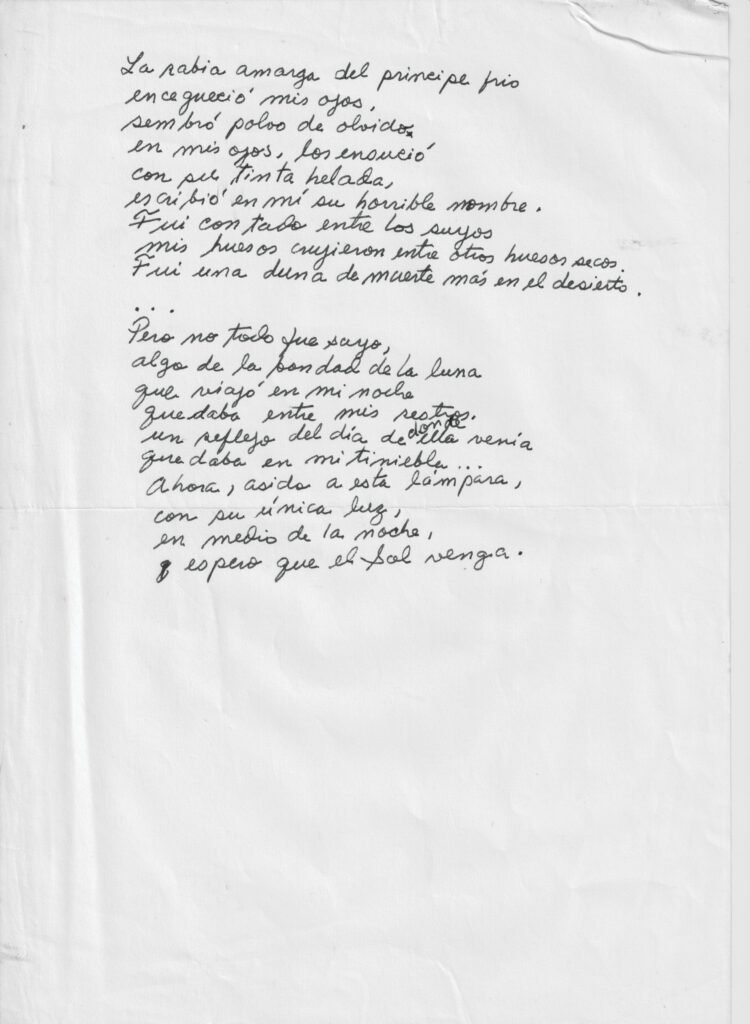 La rabia amarga del principe frio
encegueció mis ojos,
sembró polvo de olvido
en mis ojos, los ensució
con su tinta helada,
escribió en mí su horrible nombre.
Fui contado entre los suyos
mis huesos crujieron entre otros huesos secos.
Fui una duna de muerte más en el desierto.
...
Pero no todo fue suyo,
algo de la bondad de la luna
que viajó en mi noche
quedaba entre mis restos.
un reflejo del día de donde ella venía
quedaba en mi tiniebla...
Ahora, asido a esta lámpara,
con su única luz,
en medio de la noche,
espero que el Sol venga.